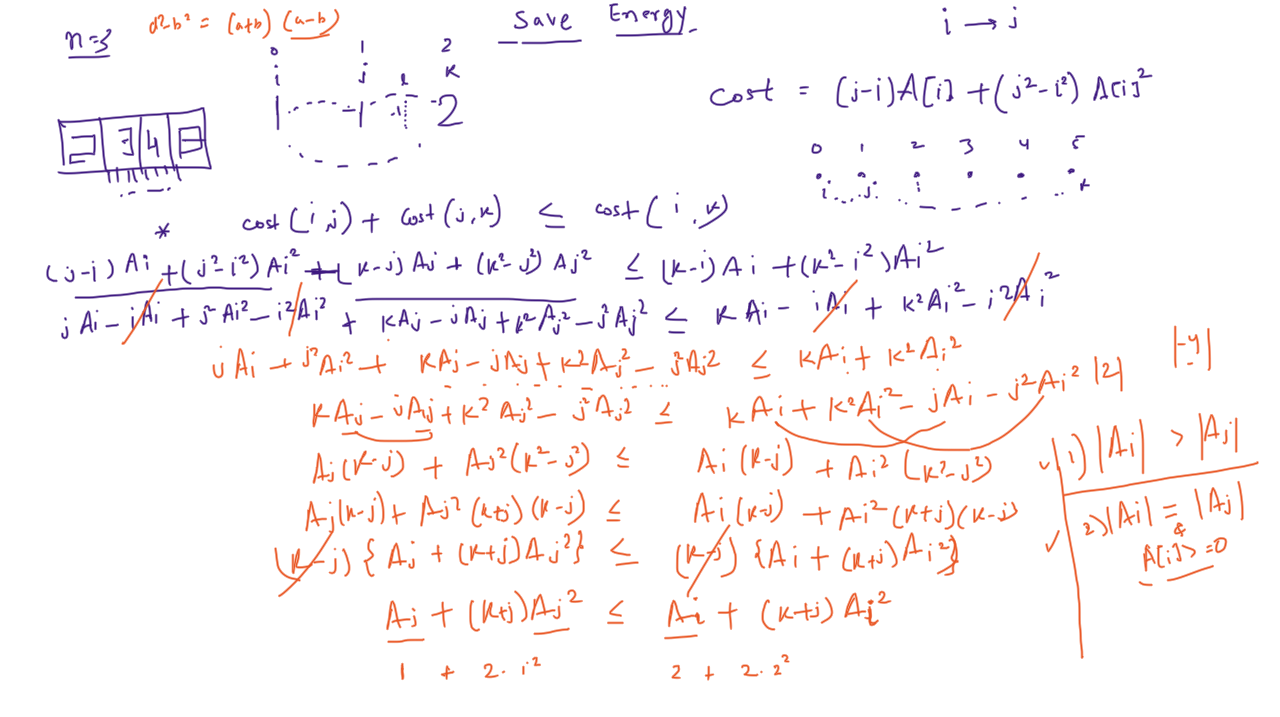 Save Energy.
n=3
a²-b² = (a+b) (a-b)
i → j
0 1 2
i j l k
1 -1 -1 2
cost = (j-i)A[i] + (j²-i²) A[i]²
2 3 4
0 1 2 3 4 5
i j i k
* cost(i,j) + cost(j,k) ≤ cost(i,k)
(j-i) Ai + (j²-i²) Ai² + (k-j) Aj + (k²-j²) Aj² ≤ (k-i) Ai + (k²-i²) Ai²
j Ai - iAi + j² Ai² - i² Ai² + kAj - jAj + k² Aj² - j² Aj² ≤ k Ai - iAi + k² Ai² - i² Ai²
j Ai + j² Ai² + kAj - jAj + k² Aj² - j² Aj² ≤ kAi + k² Ai²
kAj - jAj + k² Aj² - j² Aj² ≤ kAi + k² Ai² - jAi - j² Ai²
|2| |-4|
Aj (k-j) + Aj² (k²-j²) ≤ Ai (k-j) + Ai² (k²-j²)
1) |Ai| > |Aj|
Aj (k-j) + Aj² (k+j) (k-j) ≤ Ai (k-j) + Ai² (k+j) (k-j)
2) |Ai| = |Aj|
&
A[i] >=0
(k-j) {Aj + (k+j) Aj²} ≤ (k-j) {Ai + (k+j) Ai²}
Aj + (k+j) Aj² ≤ Ai + (k+j) Ai²
1 + 2. 1² 2 + 2. 2²